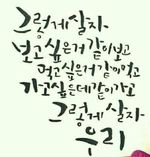 그렇게 살자
보고 싶은거 같이 보고
먹고 싶은거 같이 먹고
가고 싶은데 같이 가고
그렇게 살자
우리